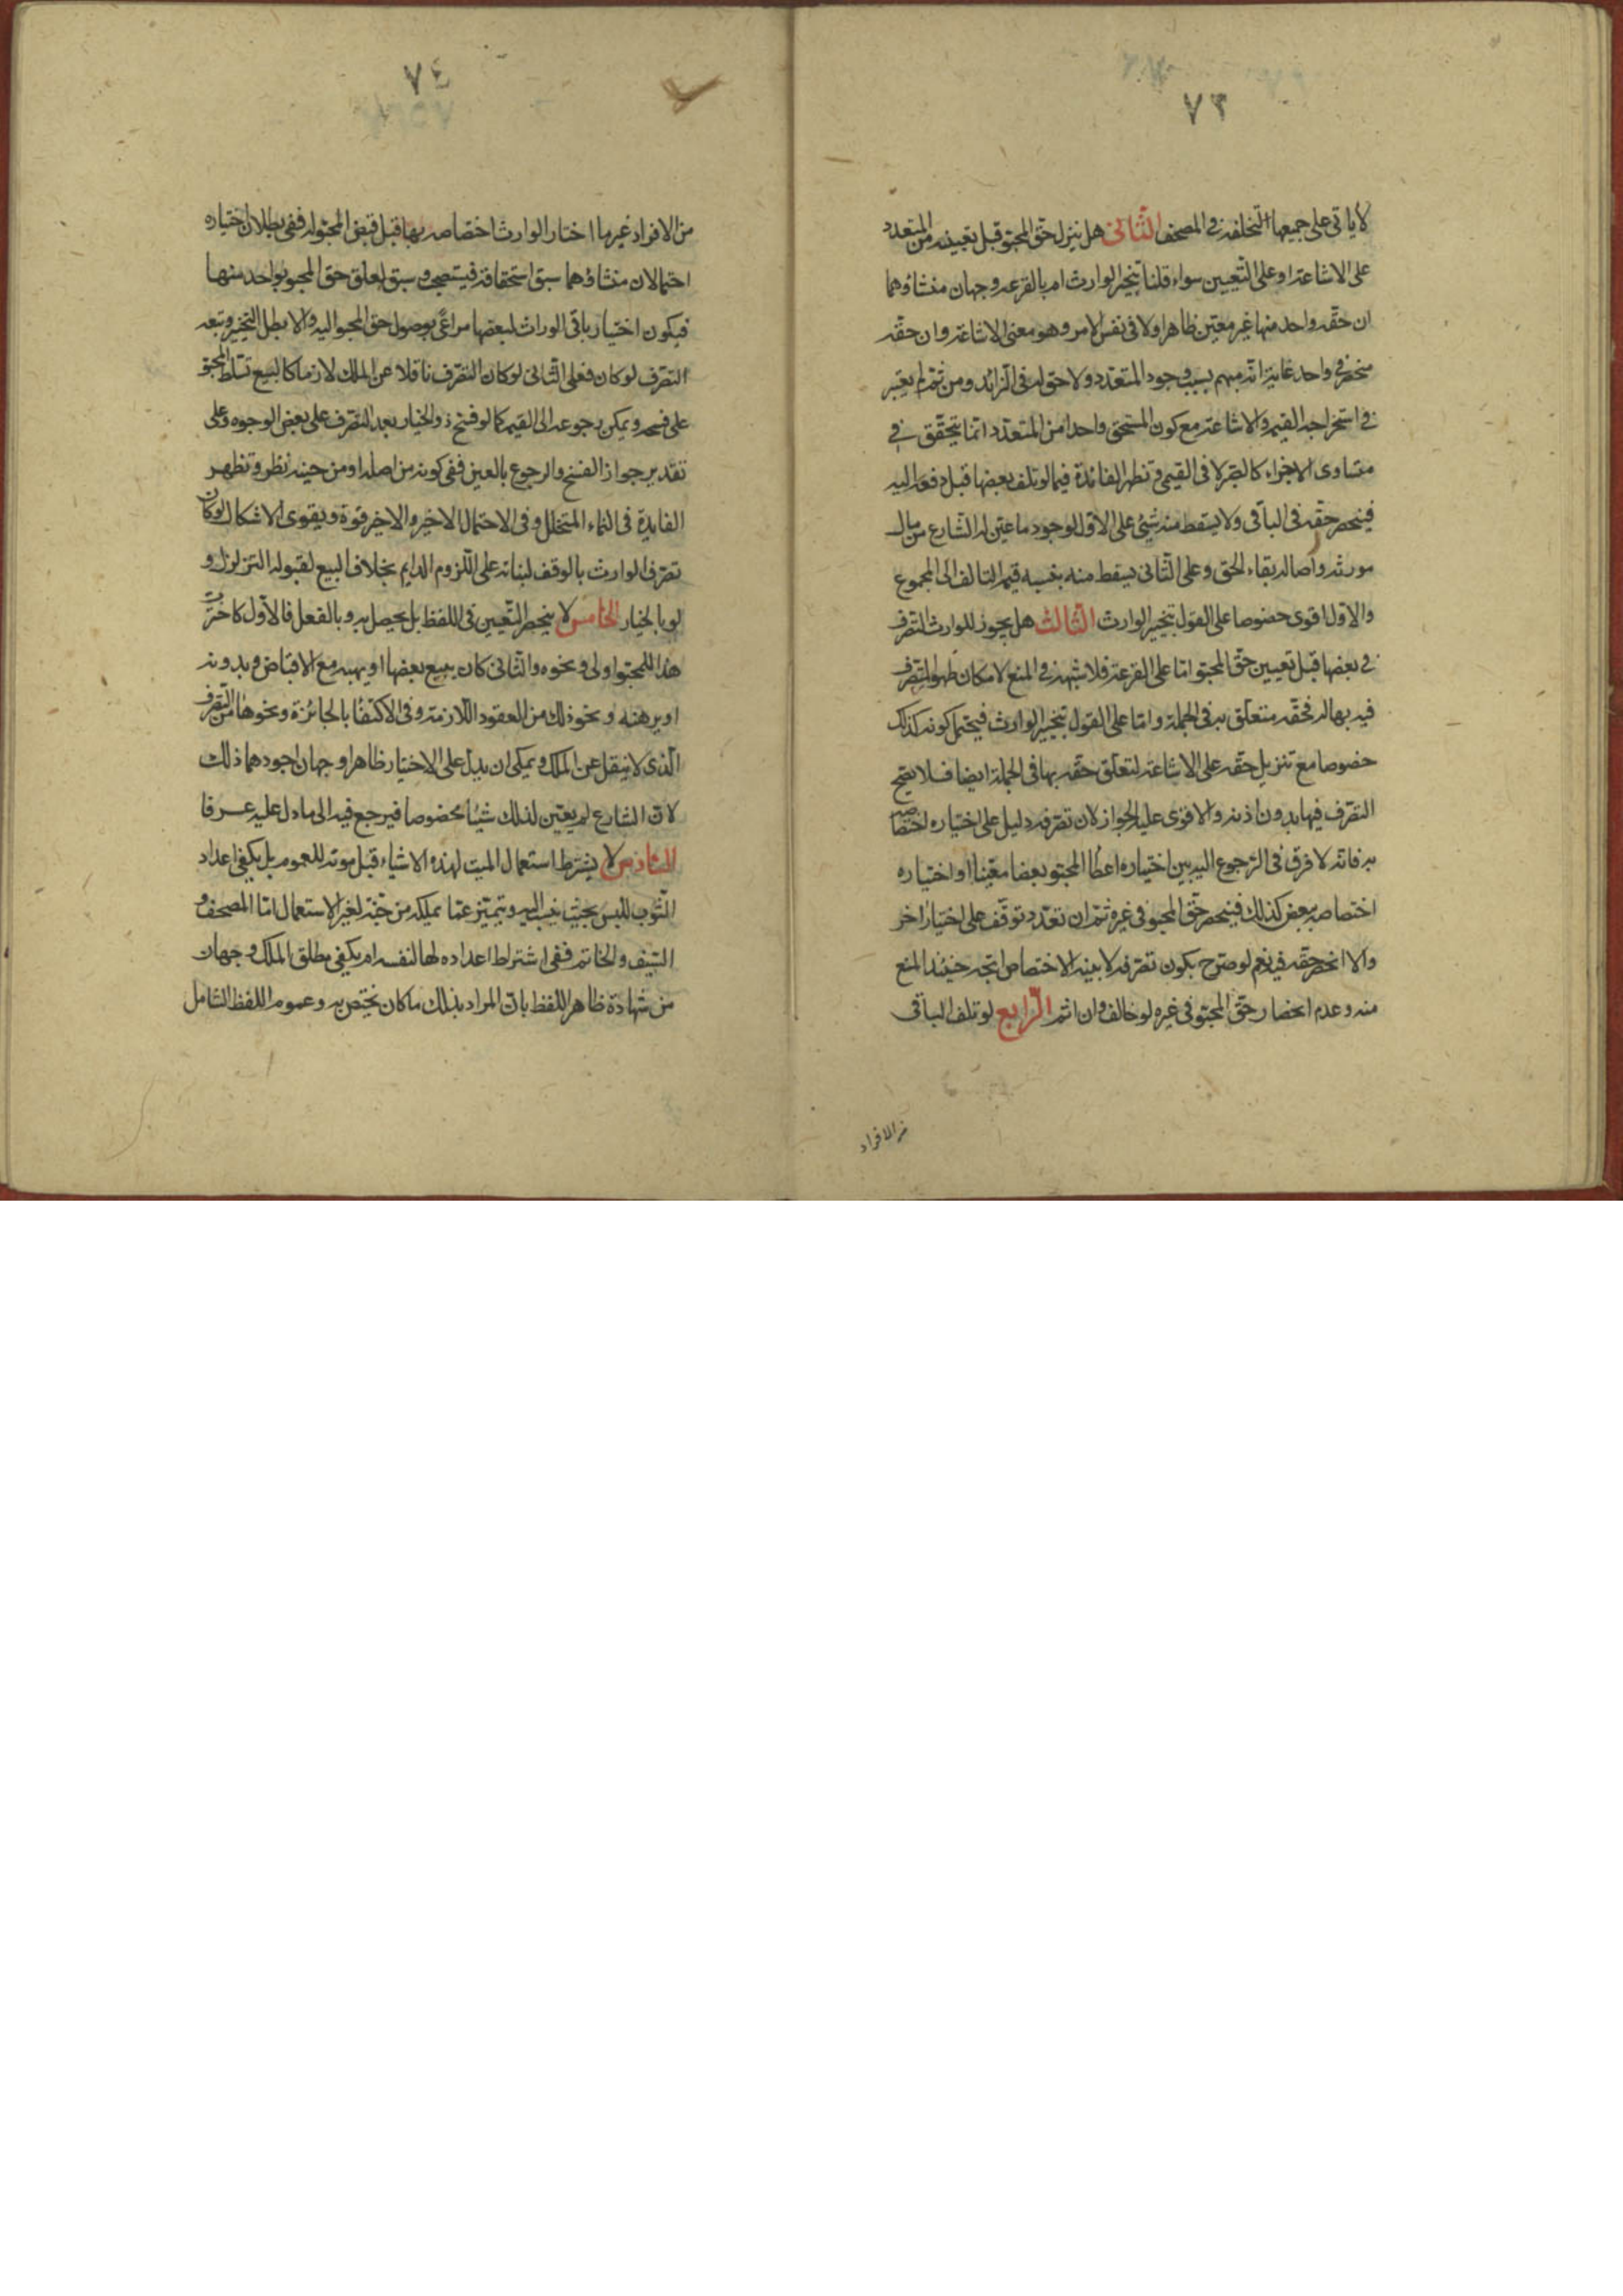 ٧٣
لا ياتى على جميعها لتخلفه فى المصحف الثانى هل ينزل حق المحبو قبل تعيينه من المتعدد
على الاشاعة او على التعيين سواء قلنا بتخيير الوارث ام بالقرعه وجهان منشاؤهما
ان حقه واحد منها غير معين ظاهرا ولا فى نفس الامر وهو معنى الاشاعة وان حقه
منحصر فى واحد غايته انه مبهم بسبب وجود المتعدد ولا حق له فى الزائد ومن ثم لم يعتبر
فى استخراجه القيمه والاشاعة مع كون المستحق واحدا من المتعدد انما يتحقق فى
متساوى الاجزاء كالصبرة لا فى القيمى وتظهر الفائدة فيما لو تلف بعضها قبل دفعه اليه
فينحصر حقه فى الباقى ولا يسقط منه شيئ على الاول لوجود ما عين له الشارع من مال
مورثه واصاله بقاء الحق وعلى الثانى يسقط منه بنسبه قيمه التالف الى المجموع
والاول اقوى خصوصا على القول بتخيير الوارث الثالث هل يجوز للوارث التصرف
فى بعضها قبل تعيين حق المحبو اما على القرعة فلا شبهة فى المنع لامكان ظهور المتصرف
فيه بها له فحقه متعلق به فى الجملة واما على القول بتخيير الوارث فيحتمل كونه كذلك
خصوصا مع تنزيل حقه على الاشاعة لتعلق حقه بها فى الجملة ايضا فلا يصح
التصرف فيها بدون اذنه والاقوى عليه الجواز لان تصرفه دليل على اختياره اختصاصه
به فانه لا فرق فى الرجوع اليه بين اختياره اعطا المحبو بعضا معينا او اختياره
اختصاصه ببعض كذلك فينحصر حق المحبو فى غيره ثم ان تعدد توقف على اختيار اخر
والا انحصر حقه فيه نعم لو صرح بكون تصرفه لا بنيه الاختصاص اتجه حينئذ المنع
منه وعدم انحصار حق المحبو فى غيره لو خالف وان اثم الرابع لو تلف الباقى
من الافراد
٧٤
من الافراد غير ما اختار الوارث اختصاصه بها قبل قبض المحبو له ففى بطلان اختياره
احتمالان منشاؤهما سبق استحقاقه فيستصحب وسبق تعلق حق المحبو بواحد منها
فيكون اختيار باقى الوراث لبعضها مراعى بوصول حق المحبو اليه والا بطل التخيير وتبعه
التصرف لو كان فعلى الثانى لو كان التصرف ناقلا عن الملك لازما كالبيع تسلط المحبو
على فسخه ويمكن رجوعه الى القيمه كما لو فسخ ذو الخيار بعد التصرف على بعض الوجوه وعلى
تقدير جواز الفسخ والرجوع بالعين ففى كونه من اصله او من حينه نظر وتظهر
الفايدة فى النماء المتخلل وفى الاحتمال الاخير والاخير قوة ويقوى الاشكال لو كان
تصرف الوارث بالوقف لبنائه على اللزوم الدايم بخلاف البيع لقبوله التزلزل و
لو بالخيار الخامس لا ينحصر التعيين فى اللفظ بل يحصل به وبالفعل فالاول كاخترت
هذا للمحبو او لى ونحوه والثانى كان يبيع بعضها او يهبه مع الاقباض وبدونه
او يرهنه ونحو ذلك من العقود اللازمة وفى الاكتفا بالجائزة ونحوها من التصرف
الذى لا ينقل عن الملك ويمكن ان يدل على الاختيار ظاهرا وجهان اجودهما ذلك
لان الشارع لم يعين لذلك شيئا مخصوصا فيرجع فيه الى ما دل عليه عرفا
السادس لا يشترط استعمال الميت لهذه الاشياء قبل موته للعموم بل يكفى اعداد
الثوب للبس بحيث ينسب اليه ويتميز عما يملكه من جنسه لغير الاستعمال اما المصحف و
السيف والخاتم ففى اشتراط اعداده لها لنفسه ام يكفى مطلق الملك وجهان
من شهادة ظاهر اللفظ بان المراد بذلك ما كان يختص به وعموم اللفظ الشامل